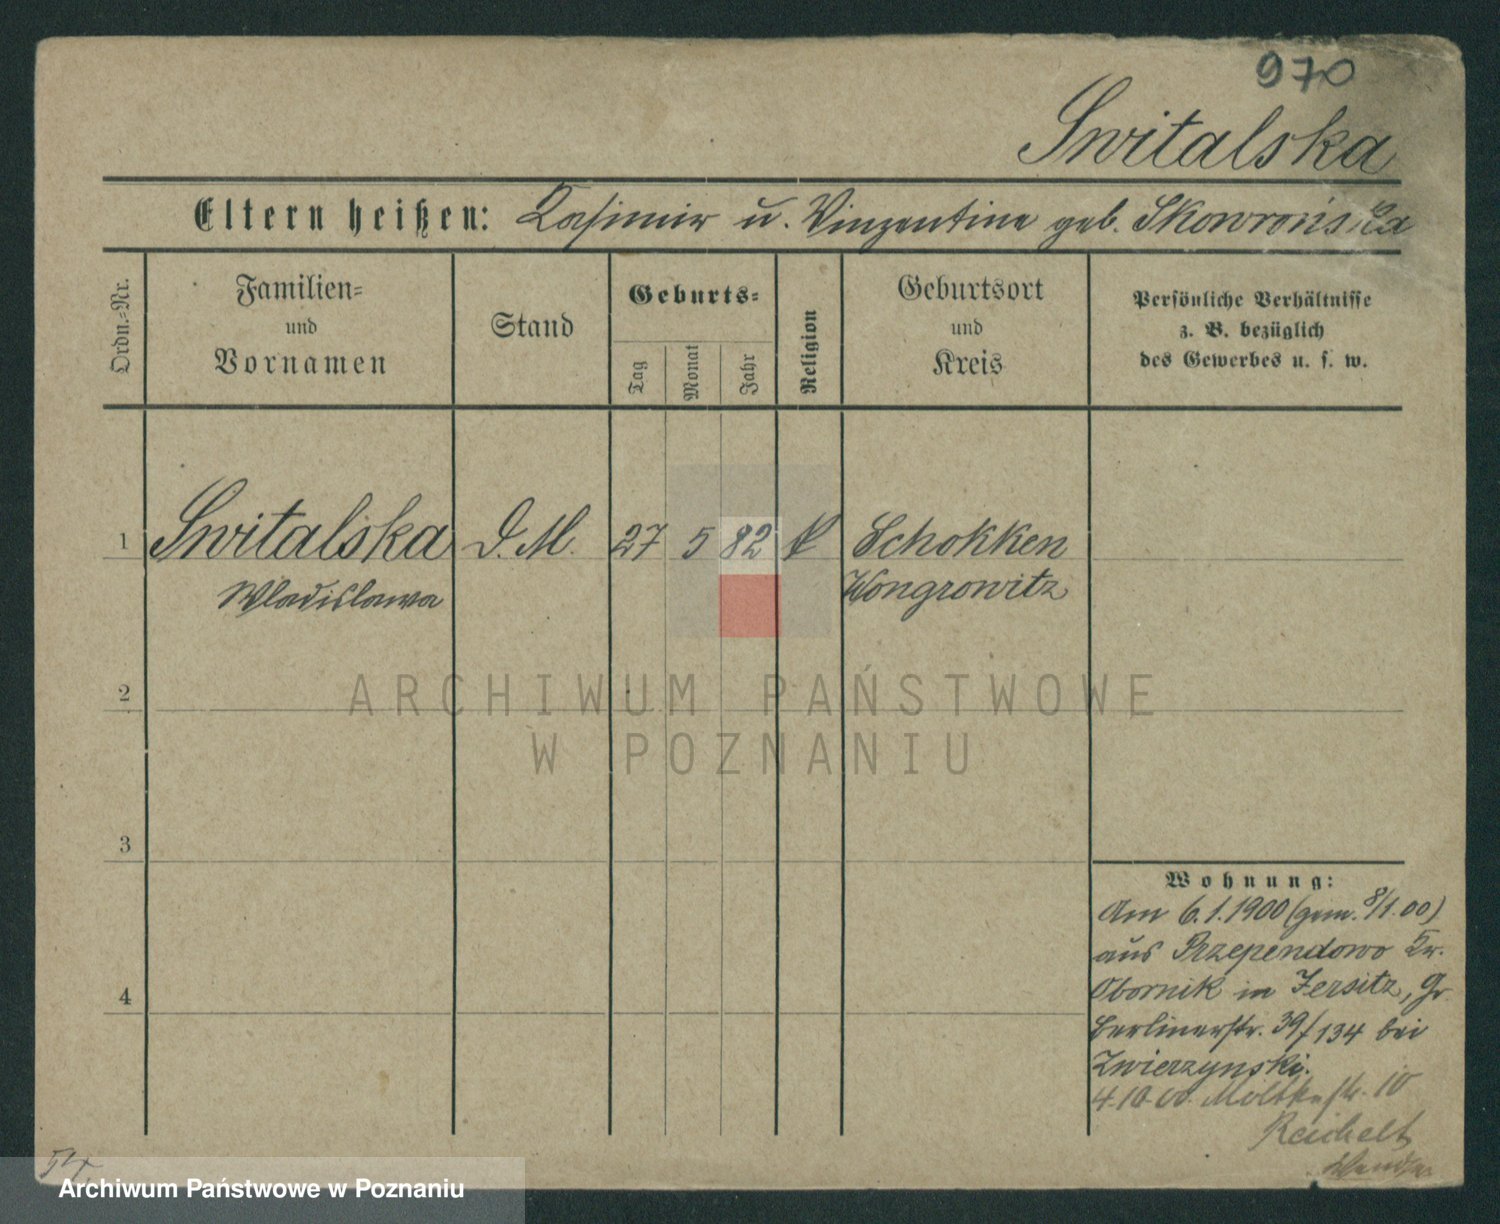 970
Switalska
Eltern heißen: Kasimir u. Vinzentine geb. Skowrońska
Ordn.-Nr.
Familien-
und
Vornamen
Stand
Geburts-
Tag
Monat
Jahr
Religion
Geburtsort
und
Kreis
Persönliche Verhältnisse
z. B. bezüglich
des Gewerbes u. s. w.
1 Switalska D. M. 27 5 82 k Schokken
Wladislawa Wongrowitz
2
ARCHIWUM PAŃSTWOWE
W POZNANIU
3
4
Wohnung:
Am 6.1.1900 (gem. 8/1.00)
aus Przependowo Kr.
Obornik in Jersitz, Gr
Berlinerstr. 39/134 bei
Zwierzynski.
4.10.00. Moltkestr. 10
Reichelt
Archiwum Państwowe w Poznaniu